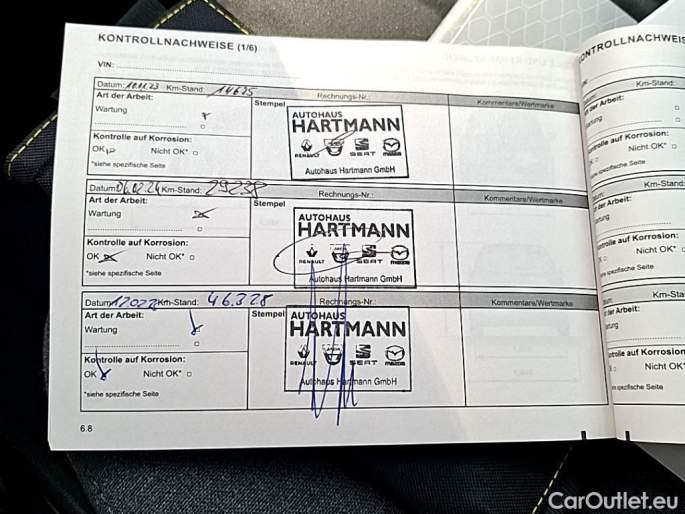 KONTROLLNACHWEISE (1/6)
VIN:
Datum: Km-Stand: 14675 Rechnungs-Nr.: Kommentare/Wertmarke
Art der Arbeit: Stempel
Wartung
AUTOHAUS
HARTMANN
Kontrolle auf Korrosion:
RENAULT DACIA SEAT mazda
OK Nicht OK*
*siehe spezifische Seite
Autohaus Hartmann GmbH
Datum: 06.02.24 Km-Stand: 29238 Rechnungs-Nr.: Kommentare/Wertmarke
Art der Arbeit: Stempel
Wartung
AUTOHAUS
HARTMANN
Kontrolle auf Korrosion:
RENAULT DACIA SEAT mazda
OK Nicht OK*
*siehe spezifische Seite
Autohaus Hartmann GmbH
Datum: Km-Stand: 46.328 Rechnungs-Nr.: Kommentare/Wertmarke
Art der Arbeit: Stempel
Wartung
AUTOHAUS
HARTMANN
Kontrolle auf Korrosion:
RENAULT DACIA SEAT mazda
OK Nicht OK*
*siehe spezifische Seite
Autohaus Hartmann GmbH
6.8
KONTROLLNACHWEISE
VIN:
Km-Stand:
Art der Arbeit:
Wartung
Kontrolle auf Korrosion:
Nicht OK*
*siehe spezifische Seite
Km-Stand:
Art der Arbeit:
Wartung
Kontrolle auf Korrosion:
Nicht OK*
*siehe spezifische Seite
Km-Stand:
Arbeit:
Wartung
Kontrolle auf Korrosion:
Nicht OK*
spezifische Seite
CarOutlet.eu